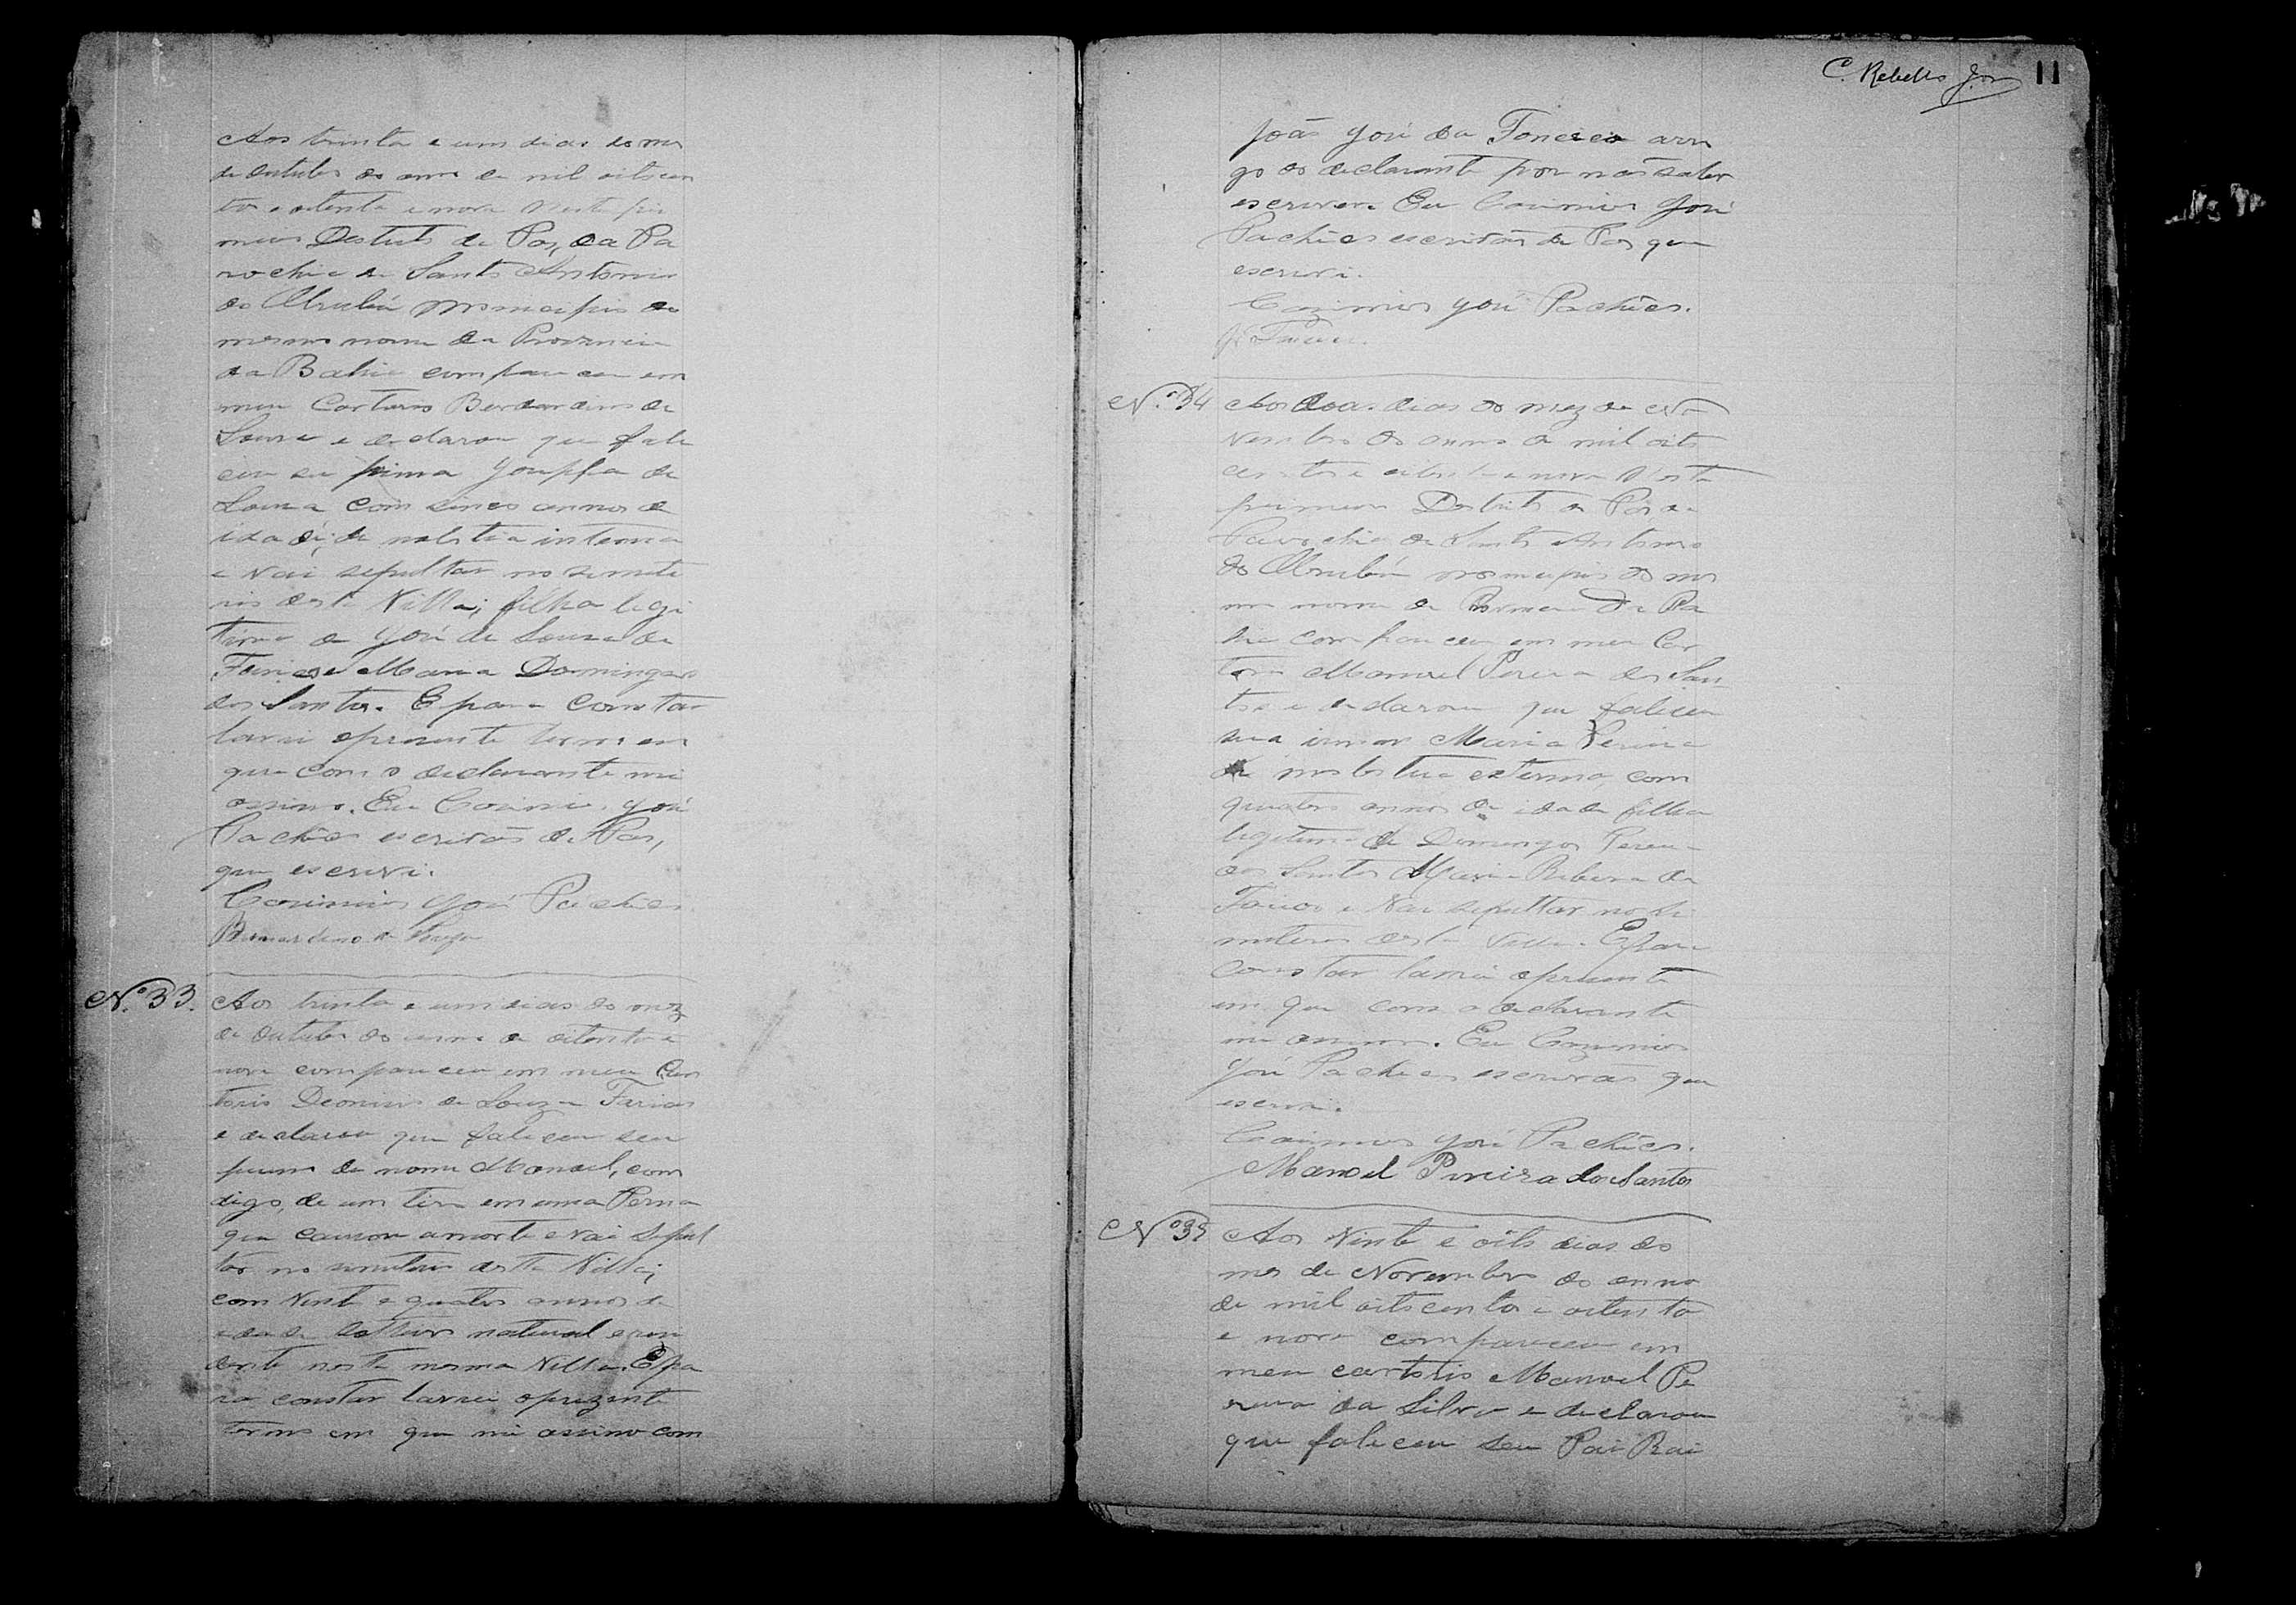 Aos trinta e um dias do mez
de Outubro do anno de mil oitocen
tos e oitenta e nove Neste pri
meiro Destricto de Paz, da Pa
rochia de Santo Antonio
do Urubú Monicipio do
mesmo nome da Provincia
da Bahia compareceu em
meu Cartorio Bernardino de
Souza e declarou que fale
ceu sua prima Josepha de
Souza com sinco annos de
idade, de molestia interna
e vai sepultar no semite
rio desta Villa; filha legi
tima de José de Souza de
Farias e Maria Domingas
dos Santos. E para constar
lavrei o presente termo em
que com o declarante me
assino. Eu Cosimiro José
Pachêco escrivão de Paz,
que escrevi.
Cosimiro José Pachêco
Bernardino de Souza
Nº 33. Aos trinta e um dias do mez
de Outubro do anno de oitenta e
nove compareceu em meu Car
torio Deonisio de Souza Farias
e declarou que faleceu seu
primo de nome Manoel, com
digo, de um tiro em uma Perna
que causou a morte e vai sepul
tar no semiterio desta Villa;
com vinte e quatro annos de
edade solteiro natural e resi
dente nesta mesma Villa. E pa
ra constar lavrei o prezente
termo em que me assino com
C. Rebello Jor 11
João José da Fonceca arro
go do declarante por não saber
escrever. Eu Cosimiro José
Pachêco escrivão de Paz que
escrevi.
Cazimiro José Pachêco.
Nº 34 Aos dois dias do mez de No
vembro do anno de mil oito
centos e oitenta e nove Neste
primeiro Destricto de Paz da
Parochia de Santo Antonio
do Urubú monicipio do mes
mo nome da Provincia da Ba
hia compareceu em meu Car
torio Manoel Pereira dos San
tos e declarou que faleceu
sua irman Maria Pereira
de molestia externa, com
quatro annos de idade filha
legitima de Domingos Pereira
dos Santos Maria Ribeira de
Farias e vai sepultar no se
miterio desta Villa. E para
constar lavrei o presente
em que com o declarante
me assino. Eu Cazimiro
José Pachêco escrivão que
escrevi.
Casimiro José Pachêco.
Manoel Pireira dos Santos
Nº 35 Aos vinte e oito dias do
mes de Novembro do anno
de mil oitocentos e oitenta
e nove compareceu em
meu cartorio Manoel Pe
reira da Silva e declarou
que faleceu seu Pai Rai